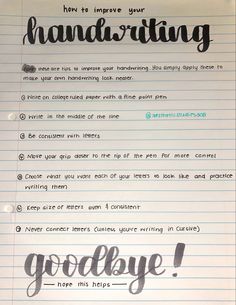 how to improve your
handwriting
these are tips to improve your handwriting. You simply apply these to
make your own handwriting look neater.
① Write on college ruled paper with a fine point pen
② Write in the middle of the line
③ Be consistent with letters
④ Move your grip closer to the tip of the pen for more control
⑤ Choose what you want each of your letters to look like and practice
writing them
⑥ Keep size of letters even & consistent
⑦ Never connect letters (unless you're writing in cursive)
goodbye!
— hope this helps —